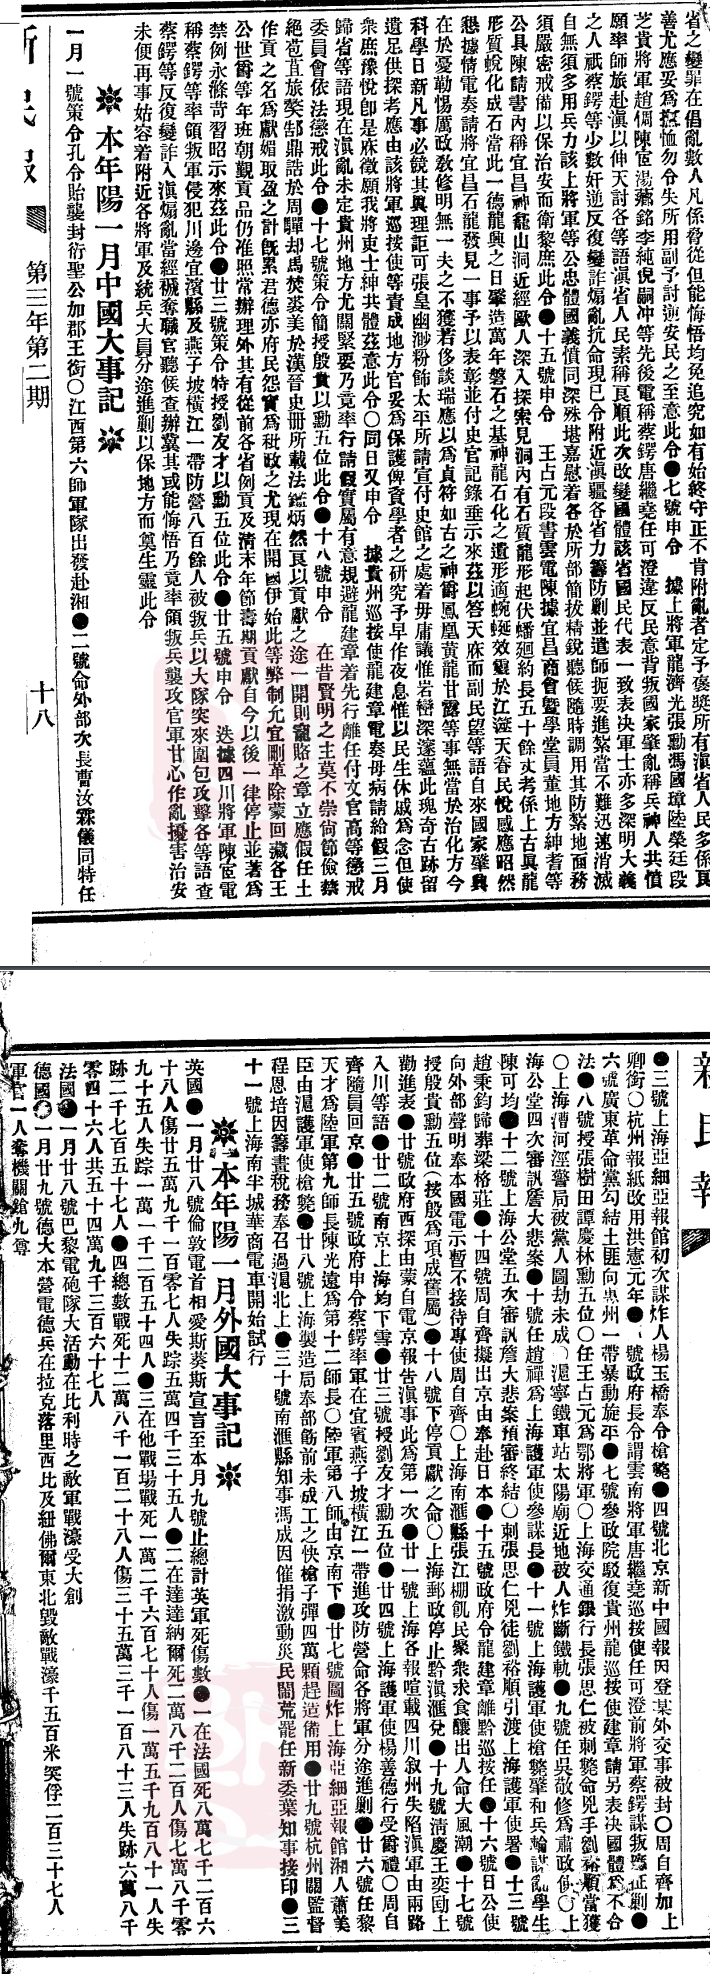 省之變罪在倡亂數人凡係脅從但能悔悟均免追究如有始終守正不肯附亂者定予褒獎所有滇省人民多係良
善尤應妥爲撫恤勿令失所用副予討逆安民之至意此令●七號申令 據上將軍龍濟光張勳馮國璋陸榮廷段
芝貴將軍趙倜陳宧湯薌銘李純倪嗣冲等先後電稱蔡鍔唐繼堯任可澄違反民意背叛國家肇亂稱兵神人共憤
願率師旅赴滇以伸天討各等語滇省人民素稱良順此次改變國體該省國民代表一致表决軍士亦多深明大義
之人祇蔡鍔等少數奸逆反復變詐煽亂抗命現已令附近滇疆各省力籌防剿並遣師扼要進紮當不難迅速消滅
自無須多用兵力該上將軍等公忠體國義憤同深殊堪嘉慰着各於所部簡拔精銳聽候隨時調用其防紮地面務
須嚴密戒備以保治安而衛黎庶此令●十五號申令 王占元段書雲電陳據宜昌商會曁學堂員董地方紳耆等
公具陳請書內稱宜昌神龕山洞近經歐人深入探索見洞內有石質龍形起伏蟠迴約長五十餘丈考係上古眞龍
形質蛻化成石當此一德龍興之日肇造萬年磐石之基神龍石化之遺形適蜿蜒效靈於江滋天眷民悅感應昭然
懇據情電奏請將宜昌石龍發見一事予以表彰並付史官記錄垂示來茲以答天庥而副民望等語自來國家肇興
在於憂勤惕厲政敎修明無一夫之不獲若侈談瑞應以爲貞符如古之神爵鳳凰黃龍甘露等事無當於治化方今
科學日新凡事必競其眞理詎可張皇幽渺粉飾太平所請宣付史館之處着毋庸議惟岩巒深邃蘊此瑰奇古跡留
遺足供探考應由該將軍巡按使等責成地方官妥爲保護俾資學者之研究予早作夜息惟以民生休戚爲念但使
衆庶豫悅卽是庥徵願我將吏士紳共體茲意此令〇同日又申令 據貴州巡按使龍建章電奏母病請給假三月
歸省等語現在滇亂未定貴州地方尤關緊要乃竟率行請假實屬有意規避龍建章着先行離任付文官高等懲戒
委員會依法懲戒此令●十七號策令簡授殷貴以勳五位此令●十八號申令 在昔賢明之主莫不崇尙節儉禁
絕苞苴旅獒郜鼎誥於周驛却馬焚裘美於漢晉史册所載法鑑炳然良以貢獻之途一開則竉賂之章立應假任土
作貢之名爲獻媚取盈之計旣累君德亦府民怨實爲秕政之尤現在開國伊始此等弊制允宜剛革除蒙回藏各王
公世爵等年班朝覲貢品仍准照常辦理外其有從前各省例貢及淸末年節壽期貢獻自今以後一律停止並著爲
禁例永滌苛習昭示來茲此令●廿三號策令特授劉友才以勳五位此令●廿五號申令 迭據四川將軍陳宧電
稱蔡鍔等率領叛軍侵犯川邊宜濱縣及燕子坡橫江一帶防營八百餘人被叛兵以大隊突來圍包攻擊各等語查
蔡鍔等反復變詐入滇煽亂當經褫奪職官聽候查辦冀其或能悔悟乃竟率領叛兵襲攻官軍甘心作亂擾害治安
未便再事姑容着附近各將軍及統兵大員分途進剿以保地方而奠生靈此令
本年陽一月中國大事記
一月一號策令孔令貽襲封衍聖公加郡王銜〇江西第六師軍隊出發赴湘●二號命外部次長曹汝霖儀同特任
新民報 第三年第二期 十八
新民報
●三號上海亞細亞報館初次謀炸人楊玉橋奉令槍斃●四號北京新中國報因登某外交事被封〇周自齊加上
卿銜〇杭州報紙改用洪憲元年● 號政府長令謂雲南將軍唐繼堯巡按使任可澄前將軍蔡鍔謀叛應征剿●
六號廣東革命黨勾結土匪向惠州一帶暴動旋平●七號參政院駁復貴州龍巡按使建章請另表决國體爲不合
法●八號授張樹田譚慶林勳五位〇任王占元爲鄂將軍〇上海交通銀行長張思仁被刺斃命兇手劉裕順當獲
〇上海漕河涇警局被黨人圖劫未成〇滬寧鐵車站太陽廟近地被人炸斷鐵軌●九號任吳敬修爲肅政使〇上
海公堂四次審訊詹大悲案●十號任趙禪爲上海護軍使參謀長●十一號上海護軍使槍斃肇和兵輪謀亂學生
陳可均●十二號上海公堂五次審訊詹大悲案預審終結〇刺張思仁兇徒劉裕順引渡上海護軍使署●十三號
趙秉鈞歸葬梁格莊●十四號周自齊擬出京由奉赴日本●十五號政府令龍建章離黔巡按任●十六號日公使
向外部聲明奉本國電示暫不接待專使周自齊〇上海南滙縣張江棚飢民聚衆求食釀出人命大風潮●十七號
授殷貴勳五位(按殷爲項成舊屬)●十八號下停貢獻之命〇上海郵政停止黔滇滙兌●十九號淸慶王奕劻上
勸進表●廿號政府西探由蒙自電京報告滇事此爲第一次●廿一號上海各報喧載四川叙州失陷滇軍由兩路
入川等語●廿二號南京上海均下雪●廿三號授劉友才勳五位●廿四號上海護軍使楊善德行受爵禮〇周自
齊隨員回京●廿五號政府申令蔡鍔率軍在宜賓燕子坡橫江一帶進攻防營命各將軍分途進剿●廿六號任黎
天才爲陸軍第九師長陳光遠爲第十二師長〇陸軍第八師由京南下●廿七號圖炸上海亞細亞報館湘人蕭美
臣由滬護軍使槍斃●廿八號上海製造局奉部飭前未成工之快槍子彈四萬顆趕造備用●廿九號杭州關監督
程恩培因籌畫稅務奉召過滬北上●三十號南滙縣知事馮成因催捐激動災民鬧荒罷任新委葉知事接印●三
十一號上海南半城華商電車開始試行
本年陽一月外國大事記
英國●一月廿八號倫敦電首相愛斯葵斯宣言至本月九號止總計英軍死傷數●一在法國死八萬七千二百六
十八人傷廿五萬九千一百零七人失踪五萬四千三十五人●二在達達納爾死二萬八千二百人傷七萬八千零
九十五人失踪一萬一千二百五十四人●三在他戰場戰死一萬二千六百七十人傷一萬五千九百八十一人失
跡二千七百五十七人●四總數戰死十二萬八千一百二十八人傷三十五萬三千一百八十三人失跡六萬八千
零四十六人共五十四萬九千三百六十七人
法國●一月廿八號巴黎電砲隊大活動在比利時之敵軍戰濠受大創
德國●一月廿九號德大本營電德兵在拉克落里西比及紐佛爾東北毀敵戰濠千五百米突俘二百三十七人
軍官一人奪機關鎗九尊